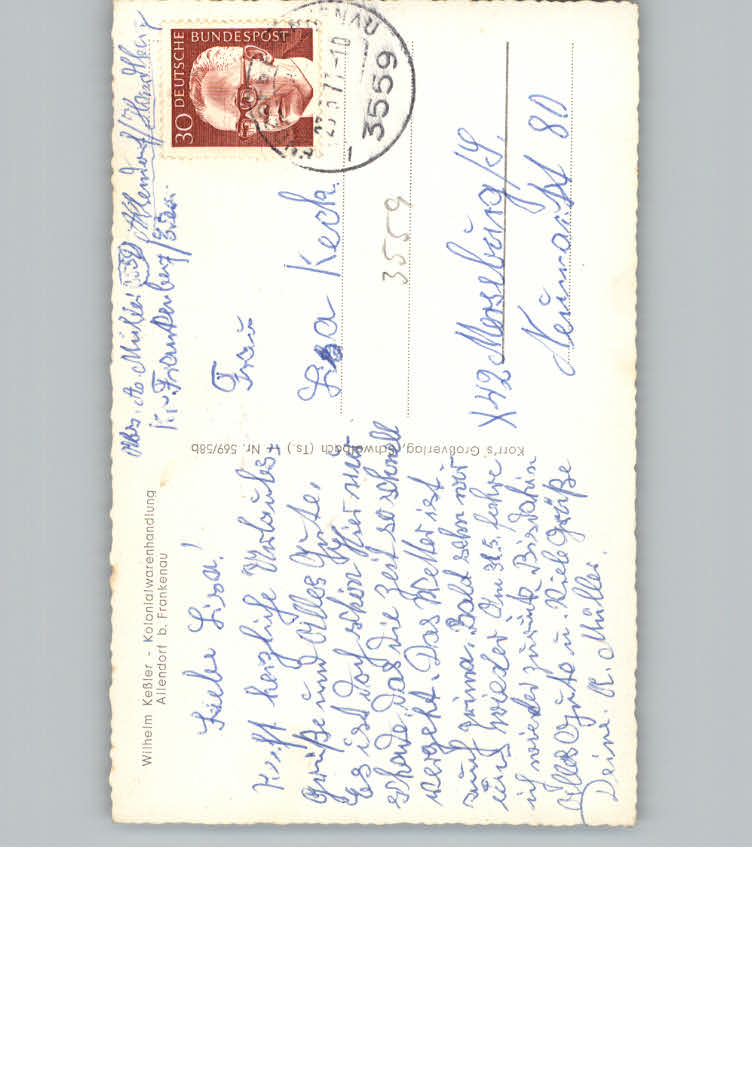 Wilhelm Keßler - Kolonialwarenhandlung
Allendorf b. Frankenau
Liebe Lisa!
herzliche Urlaubs-
grüße und Alles Gute.
Es ist doch schön hier nur
schade, das die Zeit so schnell
vergeht. Das Wetter ist
auch prima. Bald sehn wir
uns wieder Am 31.5. fahre
ich wieder zurück. Bis dahin
Alles Gute u. Viele Grüße
Deine R. Müller.
Korr's Großverlag, Schwalbach (Ts.) Nr. 569/58b
Müller Allendorf
Frankenberg/Eder.
30 DEUTSCHE BUNDESPOST
3559
1
Frau
Lisa Keck.
3559
X42 Merseburg/S.
Neumarkt 80